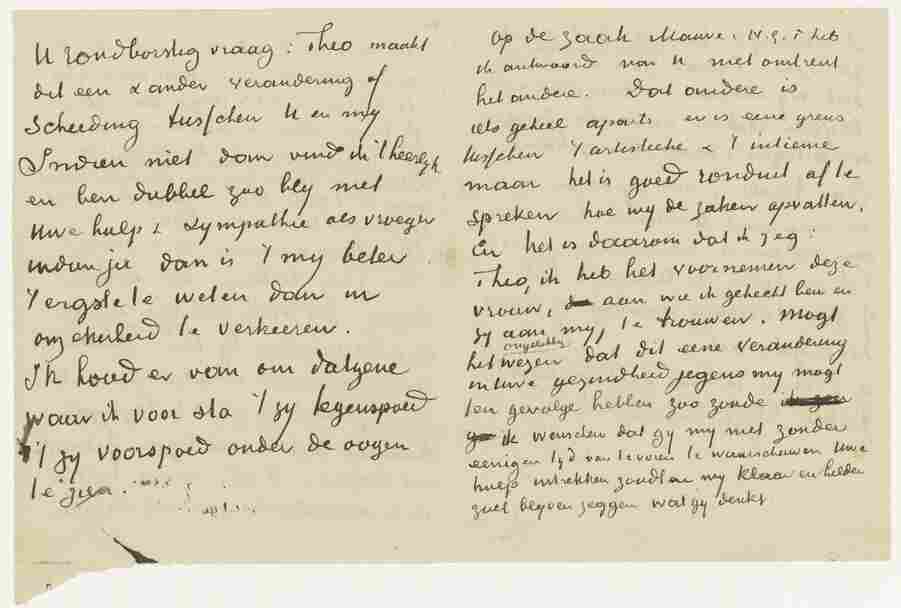 U rondborstig vraag: Theo maakt
dit een & ander verandering of
Scheiding tusschen U en my
Indien niet dan vind ik 't heerlyk
en ben dubbel zoo bly met
Uwe hulp & sympathie als vroeger
indien ju dan is 't my beter
't ergste te weten dan in
onzekerheid te verkeeren.
Ik houd er van om datgene
waar ik voor sta 't zy tegenspoed
't zy voorspoed onder de oogen
te zien.
Op de zaak Mauve. H.G.T. heb
ik antwoord van U niet omtrent
het andere. Dat andere is
iets geheel aparts er is eene grens
tusschen 't artistieke & 't intieme
maar het is goed ronduit af te
spreken hoe wy de zaken opvatten.
En het is daarom dat ik zeg:
Theo, ik heb het voornemen deze
vrouw, aan wie ik gehecht ben en
zy aan my, te trouwen. Mogt
ongelukkig
het wezen dat dit eene verandering
in Uwe gezindheid jegens my mogt
ten gevolge hebben zoo zoude
ik wenschen dat gy my niet zonder
eenigen tyd van tevoren te waarschuwen Uwe
hulp intrekken zoudt en my klaar en helder
zult blyven zeggen wat gy denkt